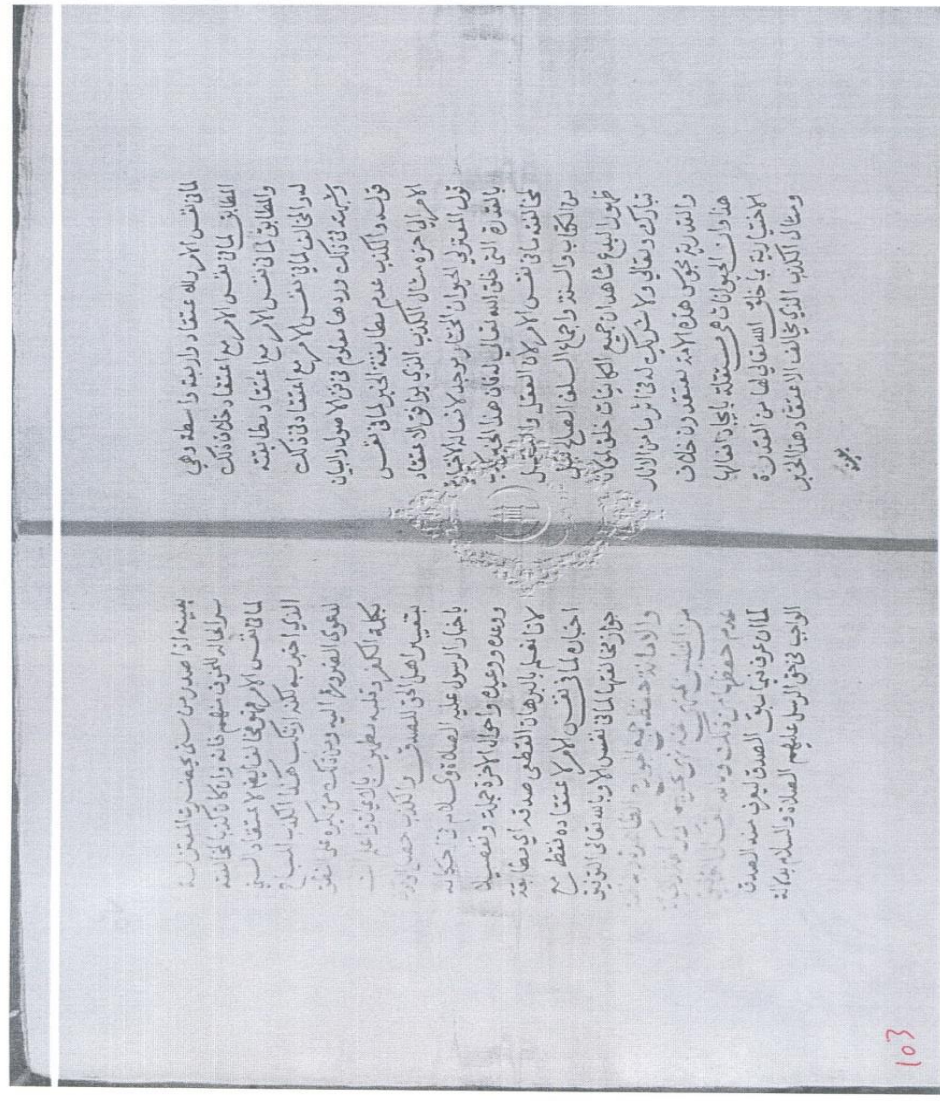 لما في نفس الامر بلا اعتقاد واربعة واسطة وهي
المطابق لما في نفس الامر مع اعتقاد خلاف ذلك
والمطابق لما في نفس الامر مع اعتقاد مطابقته
له والمخالف لما في نفس الامر مع اعتقاد في ذلك
في ذلك وردها معلوم في فن الاصول والبيان
قوله والكذب عدم مطابقة الخبر لما في نفس
الامر الى اخره مثال الكذب الذي يوافق الاعتقاد
قول المعتزلي الحيوان المختار موجد لافعاله الاختيارية
بالقدرة التي خلق الله تعالى له فان هذا الخبر كذب
مخالفته ما في نفس الامر لان العقل والنقل
من الكتاب والسنة واجماع السلف الصالح قبل
ظهور البدع شاهدان جميع الكائنات خلق لمولانا
تبارك وتعالى ولا شريك له في اثر ما من الاثار
والقدرية مجوس هذه الامة تعتقد خلاف
هذا وان الحيوانات هي مستقلة بايجاد افعالها
الاختيارية بما خلق الله تعالى لها من القدرة
ومثال الكذب الذي يخالف الاعتقاد هذا الخبر
بعينه
بعينه اذا صدر من سني بحضرة المعتزلة
سرا لحاله للخوف منهم فانه وان كان كذبا لمخالفته
لما في نفس الامر فهو مخالف لاعتقاد السني
الذي اخبر به لكنه ارتكب هذا الكذب المباح
لدعوى الضرورة اليه ومن ذلك من يكره على النطق
بكلمة الكفر وقلبه مطمئن بالايمان واعلم ان
بتفسير اهل الحق للصدق والكذب
باخبار الرسول عليه الصلاة والسلام في
ووعده ووعيده واحوال الاخرة جملة وتفصيلا
لانا نعلم بالبرهان القطعي صدقه اي مطابقة
اخباره لما في نفس الامر لا اعتقاده فقط مع
جواز مخالفتها لما في نفس الامر وبالله تعالى التوفيق
والامانة حفظ
من
عدم حفظها من ذلك
لما ان عرف فيما سبق الصدق ليعرف منه الصدق
الواجب في حق الرسل عليهم الصلاة والسلام
103